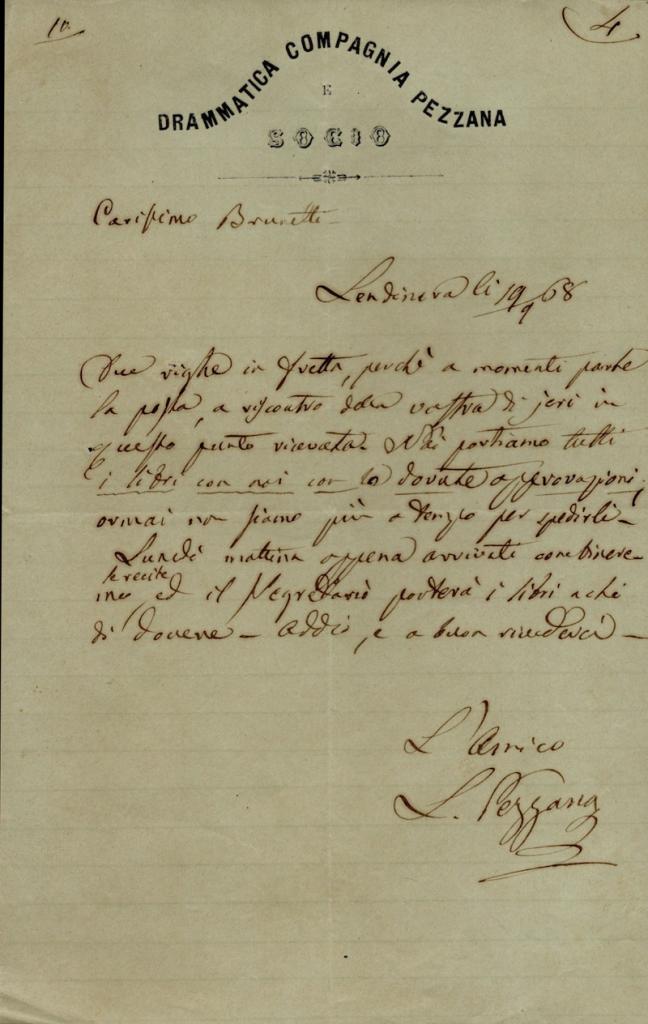 10.
4
DRAMMATICA COMPAGNIA PEZZANA
E
SOCIO
Carissimo Brunetti
Lendinara li 19/9 68
Due righe in fretta, perchè a momenti parte
la posta, a riscontro della vostra di jeri in
questo punto ricevuta. Noi portiamo tutti
i libri con noi con le dovute approvazioni,
ormai non siamo più a tempo per spedirli -
Lunedì mattina appena arrivati combinere-
le recite
mo, ed il Segretario porterà i libri a chi
di dovere - Addio, e a buon rivederci -
L'Amico
L. Pezzana